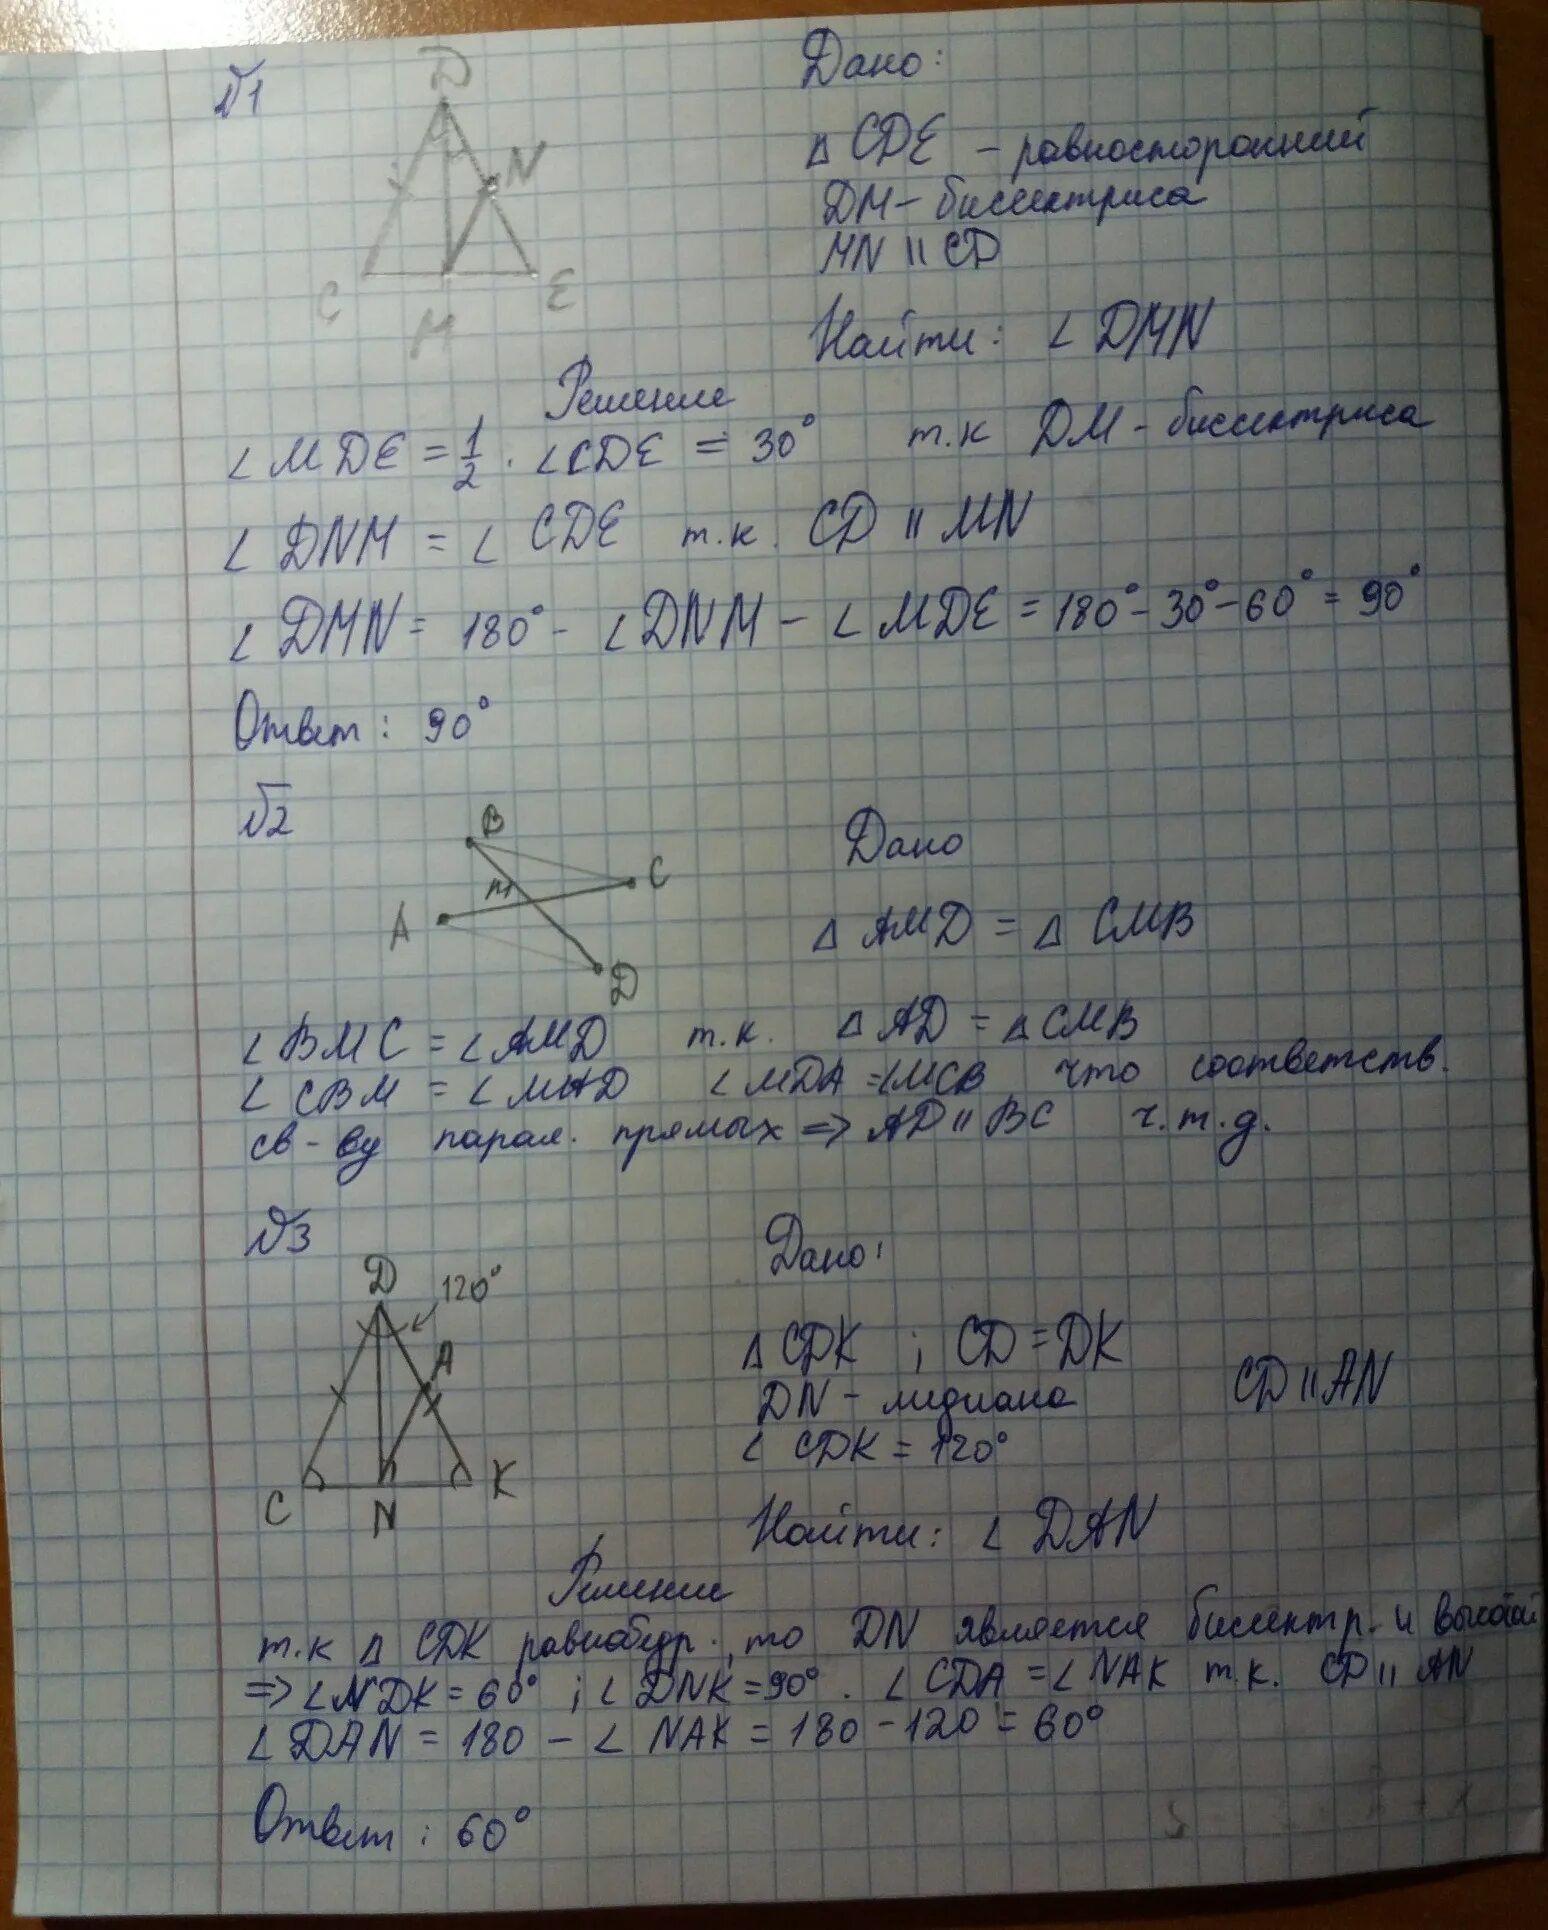 №1
D
N
C
M
E
Дано:
Δ CDE – равносторонний
DM – биссектриса
MN || CD
Найти: ∠ DMN
Решение
∠ MDE = 1/2 · ∠CDE = 30° т.к DM – биссектриса
∠ DNM = ∠ CDE т.к. CD || MN
∠ DMN = 180° – ∠DNM – ∠ MDE = 180° – 30° – 60° = 90°
Ответ: 90°
№2
B
C
m
A
D
Дано
Δ AMD = Δ CMB
∠ BMC = ∠ AMD т.к. Δ AD = Δ CMB
∠ CBM = ∠ MAD ∠ MDA = ∠MCB что соответств.
св-ву парал. прямых ⇒ AD || BC ч.т.д.
№3
D
120°
A
C
N
K
Дано:
Δ CDK ; CD = DK
DN – медиана CD || AN
∠ CDK = 120°
Найти: ∠ DAN
Решение
т.к Δ CDK равнобедр., то DN является биссектр. и высотой
⇒ ∠NDK = 60° ; ∠ DNK = 90°. ∠ CDA = ∠ NAK т.к. CD || AN
∠ DAN = 180 – ∠ NAK = 180 – 120 = 60°
Ответ: 60°